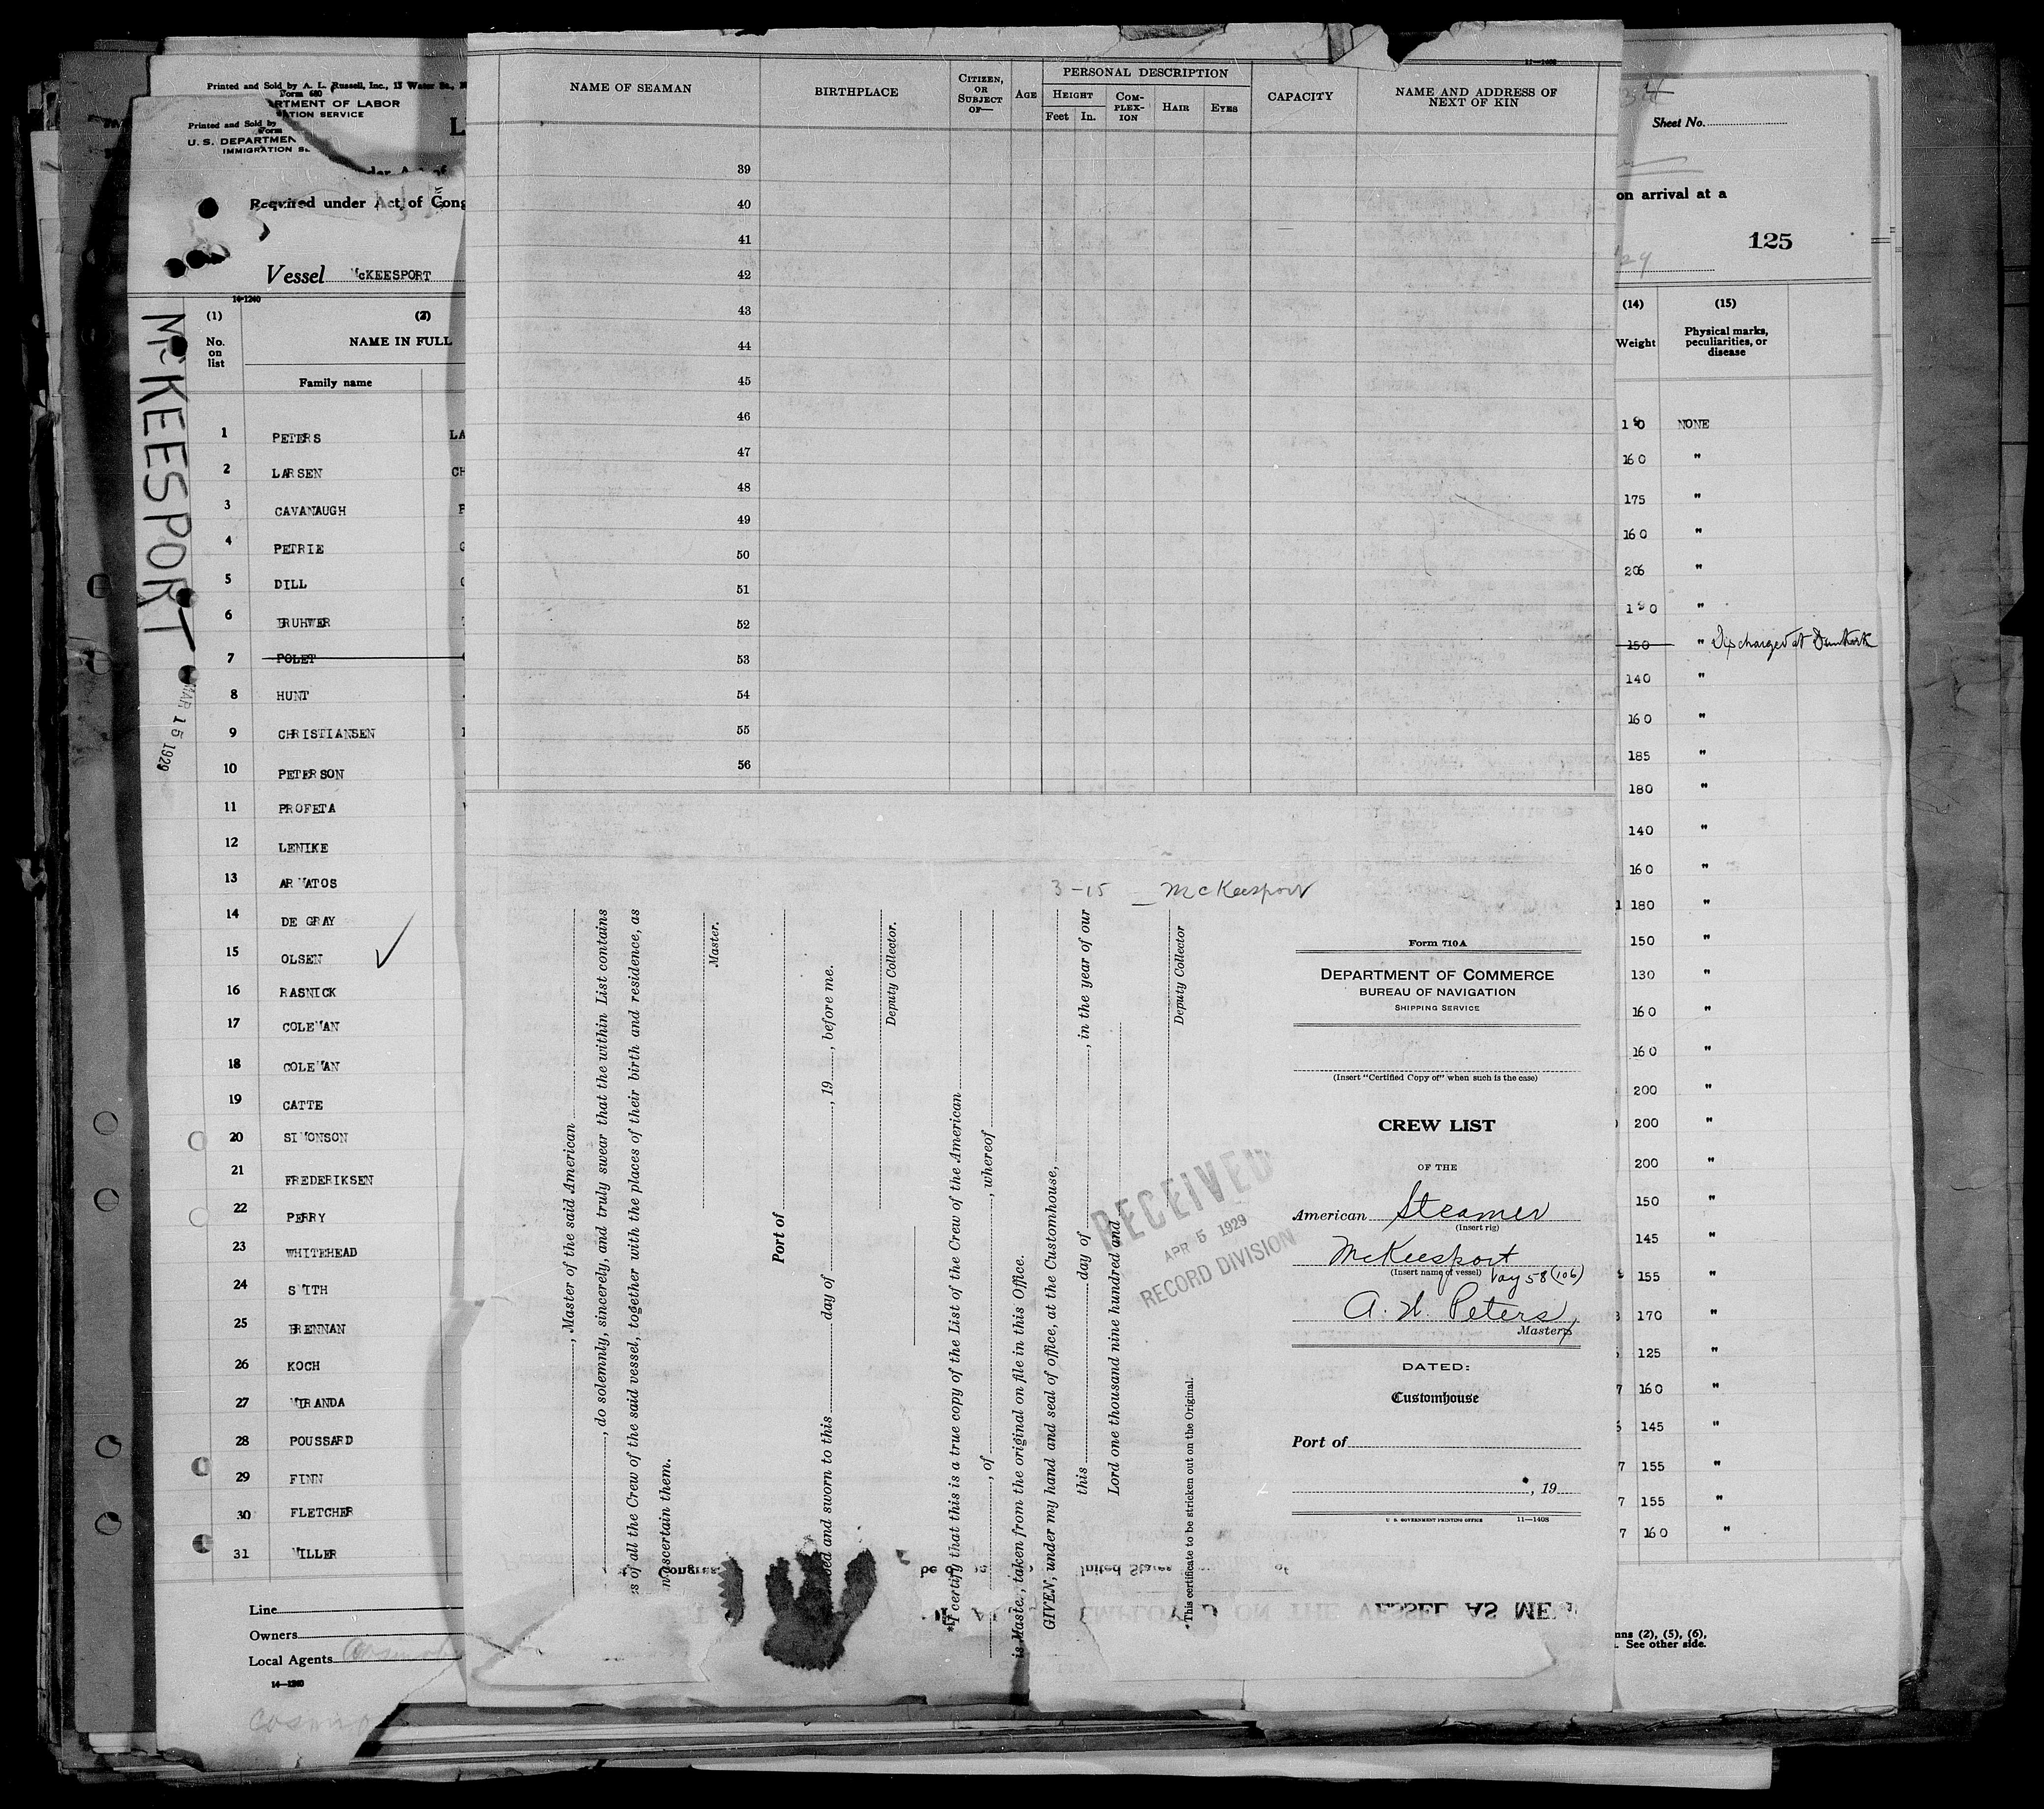 Printed and Sold by A. L. Russell, Inc., 13 Water St.,
Form 680
RTMENT OF LABOR
ATION SERVICE
Printed and Sold by
Form
U. S. DEPARTMEN
IMMIGRATION SE
Required under Act of Cong
Vessel McKEESPORT
14-1240
(1)
No.
on
list
(2)
NAME IN FULL
Family name
McKEESPORT
MAR 15 1929
1 PETERS LA
2 LARSEN CH
3 CAVANAUGH
4 PETRIE
5 DILL
6 BRUHWER
7 POLET
8 HUNT
9 CHRISTIANSEN
10 PETERSON
11 PROFETA
12 LENIKE
13 ARMATOS
14 DE GRAY
15 OLSEN
16 RASNICK
17 COLEMAN
18 COLEMAN
19 CATTE
20 SIMONSON
21 FREDERIKSEN
22 PERRY
23 WHITEHEAD
24 SMITH
25 BRENNAN
26 KOCH
27 MIRANDA
28 POUSSARD
29 FINN
30 FLETCHER
31 MILLER
Line
Owners
Local Agents
14-1240
11-1408
NAME OF SEAMAN
BIRTHPLACE
CITIZEN,
OR
SUBJECT
OF—
AGE
PERSONAL DESCRIPTION
HEIGHT
Feet In.
COM-
PLEX-
ION
HAIR
EYES
CAPACITY
NAME AND ADDRESS OF
NEXT OF KIN
39
40
41
42
43
44
45
46
47
48
49
50
51
52
53
54
55
56
3-15 — McKeesport
, Master of the said American
, do solemnly, sincerely, and truly swear that the within List contains
s of all the Crew of the said vessel, together with the places of their birth and residence, as
n ascertain them.
Master.
Port of
ed and sworn to this day of , 19 , before me.
Deputy Collector.
*I certify that this is a true copy of the List of the Crew of the American
, of , whereof
is Master, taken from the original on file in this Office.
GIVEN, under my hand and seal of office, at the Customhouse,
this day of , in the year of our
Lord one thousand nine hundred and
Deputy Collector
*This certificate to be stricken out on the Original.
RECEIVED
APR 5 1929
RECORD DIVISION
Form 710A
DEPARTMENT OF COMMERCE
BUREAU OF NAVIGATION
SHIPPING SERVICE
(Insert "Certified Copy of" when such is the case)
CREW LIST
OF THE
American Steamer
(Insert rig)
McKeesport
(Insert name of vessel) Voy 58 (106)
A. H. Peters
Master
DATED:
Customhouse
Port of
, 19
U. S. GOVERNMENT PRINTING OFFICE 11—1408
Congress
United States
EMPLOYED ON THE VESSEL AS ME
Sheet No.
on arrival at a
125
(14)
Weight
(15)
Physical marks,
peculiarities, or
disease
190 NONE
160 "
175 "
160 "
206 "
190 "
150 " Discharged at Dunkirk
140 "
160 "
185 "
180 "
140 "
160 "
180 "
150 "
130 "
160 "
160 "
200 "
200 "
200 "
150 "
145 "
155 "
170 "
125 "
160 "
145 "
155 "
155 "
160 "
nns (2), (5), (6),
See other side.